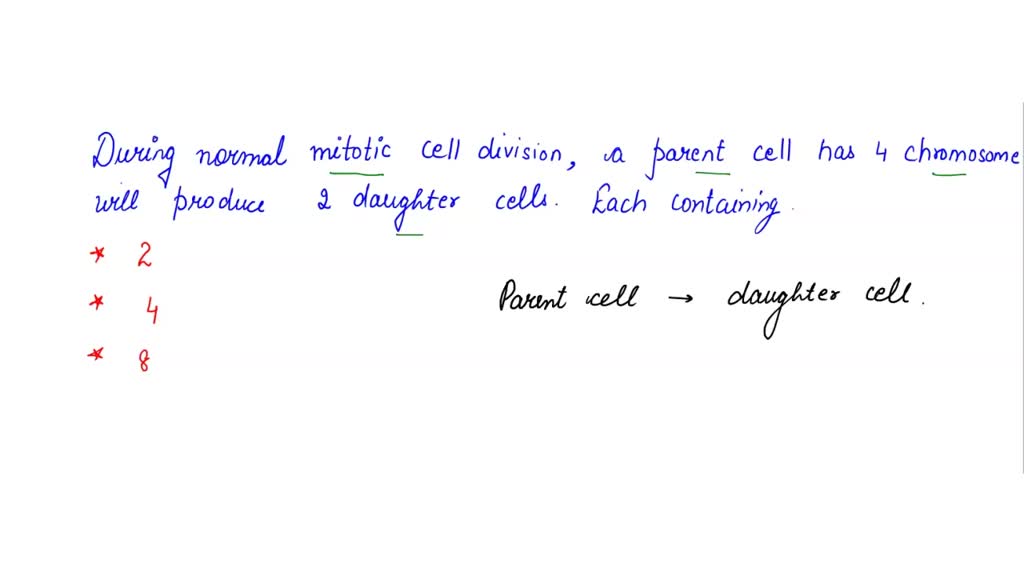 During normal mitotic cell division, a parent cell has 4 chromosome
will produce 2 daughter cells. Each containing.
* 2
* 4
* 8
Parent cell → daughter cell.